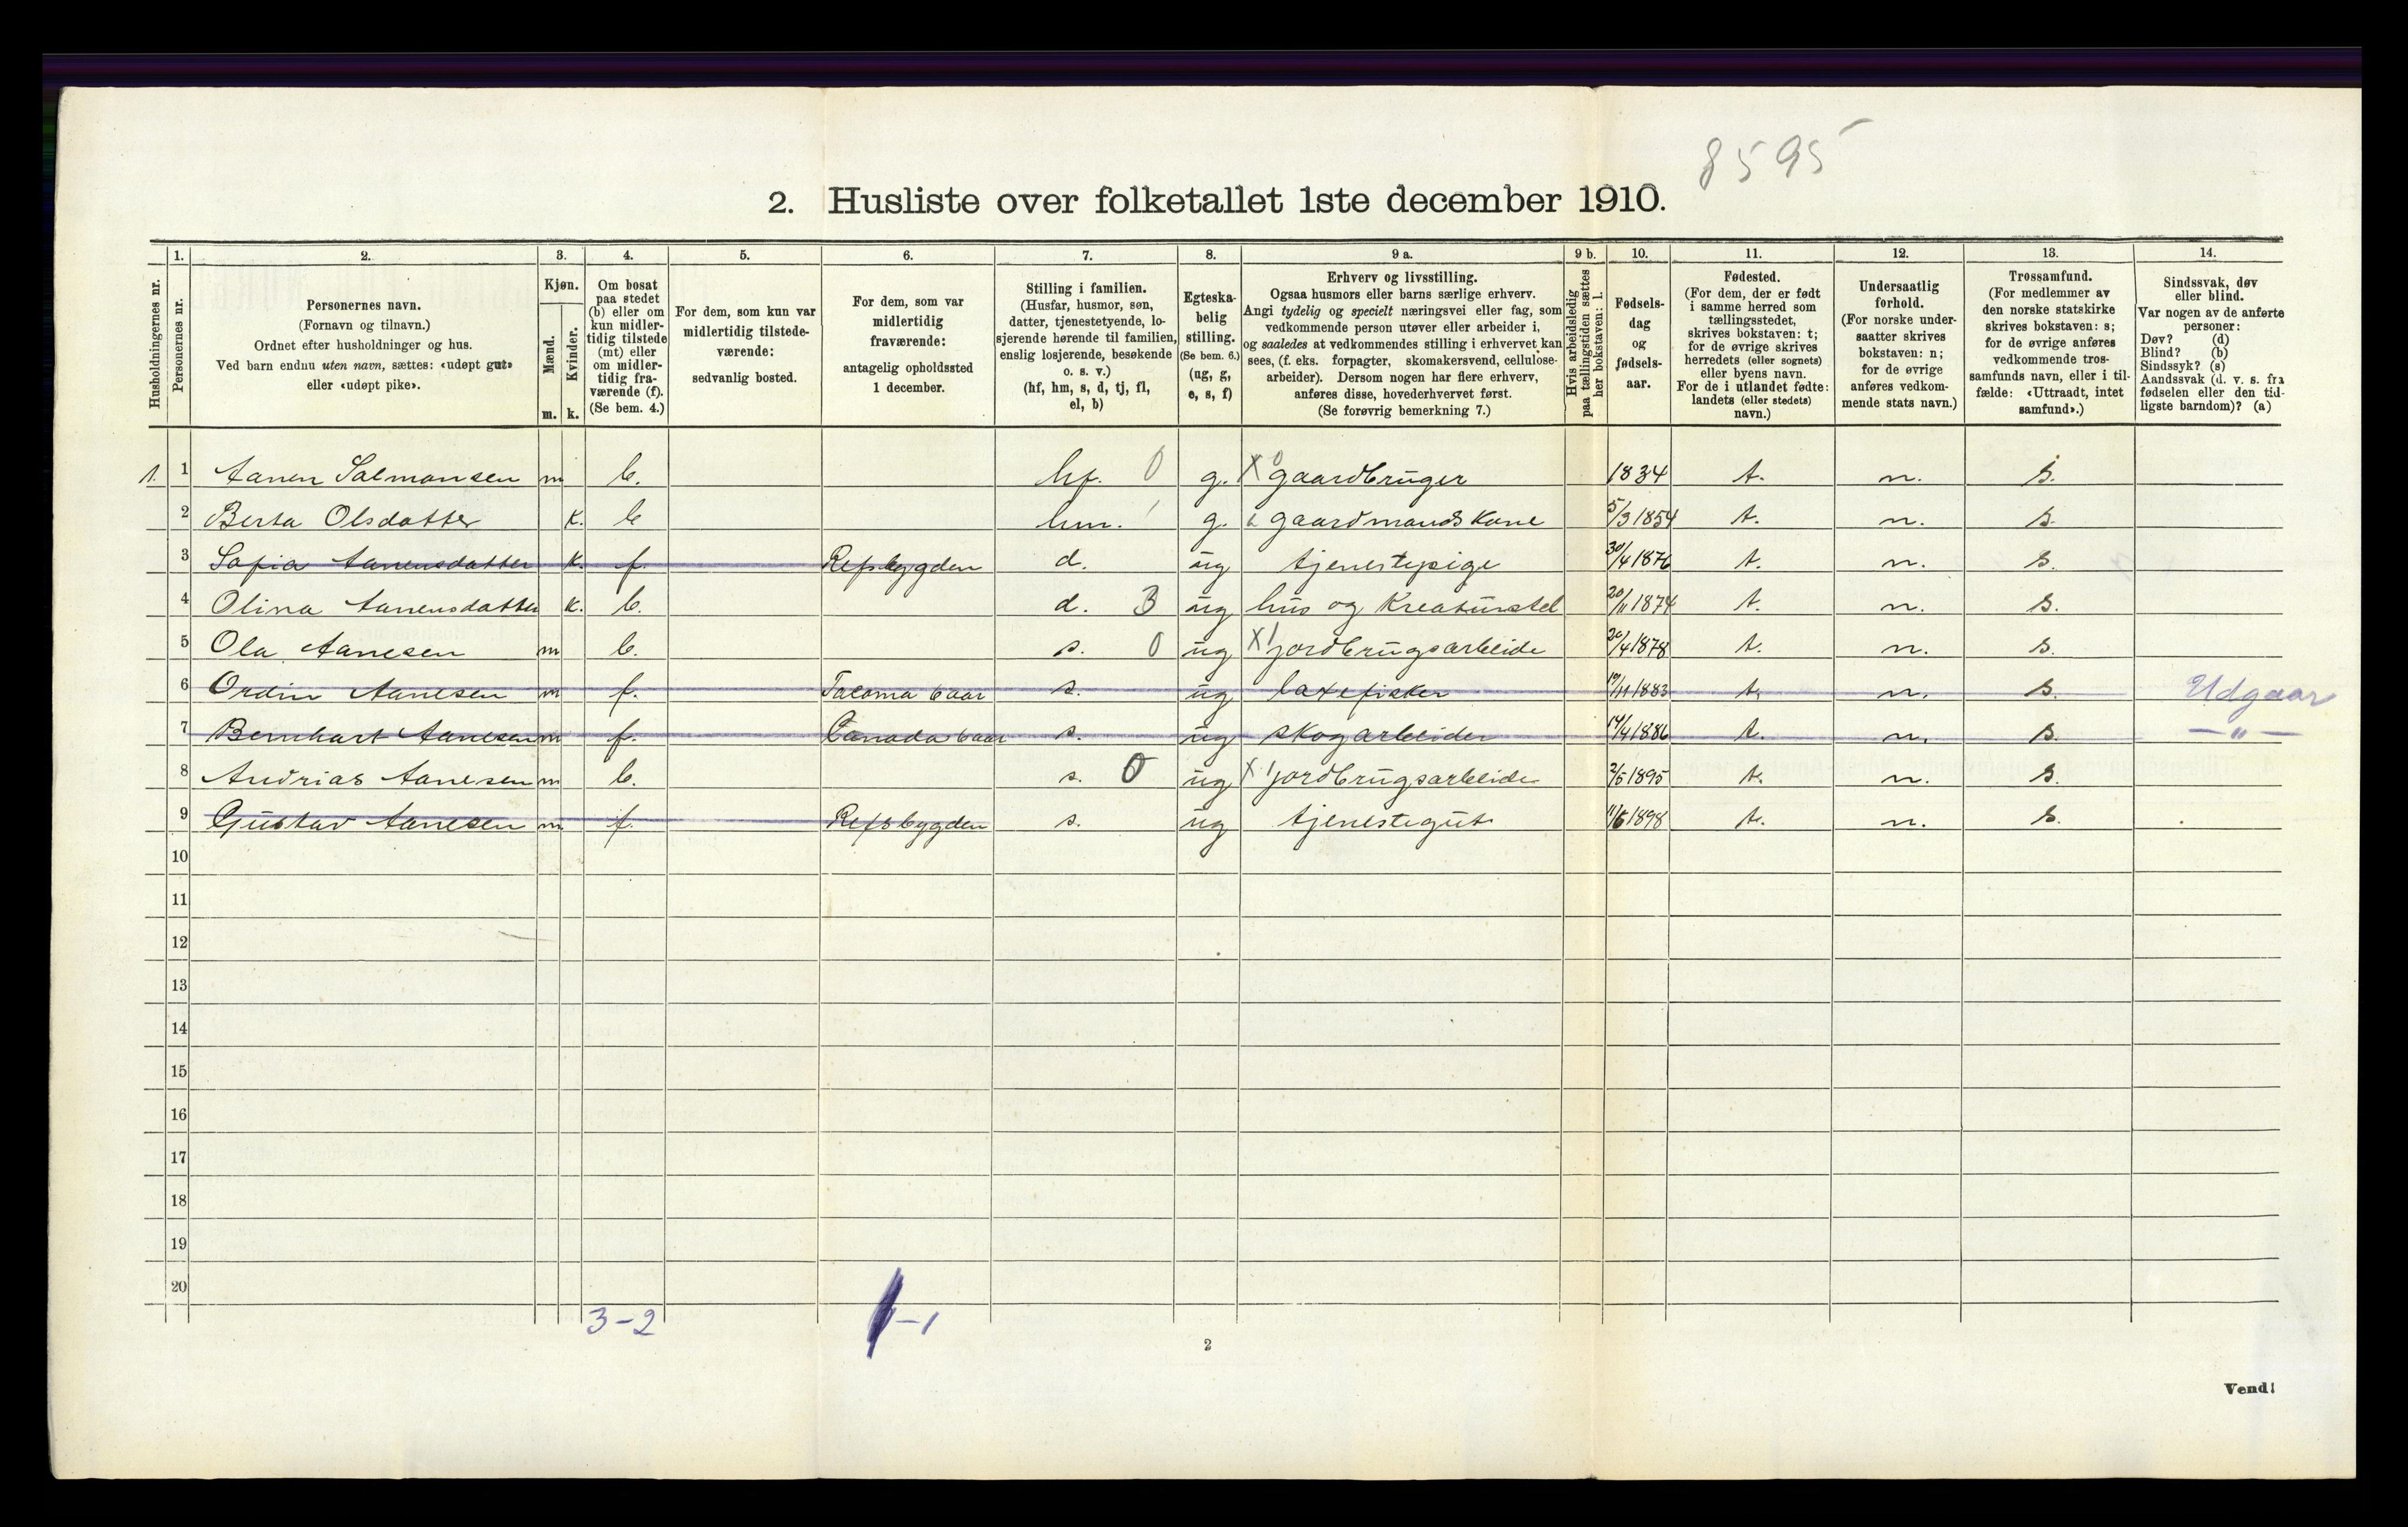 8595
2. Husliste over folketallet 1ste december 1910.
Husholdningernes nr.
1. Personernes nr.
2. Personernes navn. (Fornavn og tilnavn.) Ordnet efter husholdninger og hus. Ved barn endnu uten navn, sættes: «udøpt gut» eller «udøpt pike».
3. Kjøn. Mænd. m. Kvinder. k.
4. Om bosat paa stedet (b) eller om kun midlertidig tilstede (mt) eller om midlertidig fraværende (f). (Se bem. 4.)
5. For dem, som kun var midlertidig tilstedeværende: sedvanlig bosted.
6. For dem, som var midlertidig fraværende: antagelig opholdssted 1 december.
7. Stilling i familien. (Husfar, husmor, søn, datter, tjenestetyende, losjerende hørende til familien, enslig losjerende, besøkende o. s. v.) (hf, hm, s, d, tj, fl, el, b)
8. Egteskabelig stilling. (Se bem. 6.) (ug, g, e, s, f)
9 a. Erhverv og livsstilling. Ogsaa husmors eller barns særlige erhverv. Angi tydelig og specielt næringsvei eller fag, som vedkommende person utøver eller arbeider i, og saaledes at vedkommendes stilling i erhvervet kan sees, (f. eks. forpagter, skomakersvend, cellulosearbeider). Dersom nogen har flere erhverv, anføres disse, hovederhvervet først. (Se forøvrig bemerkning 7.)
9 b. Hvis arbeidsledig paa tællingstiden sættes her bokstaven: l.
10. Fødselsdag og fødselsaar.
11. Fødested. (For dem, der er født i samme herred som tællingsstedet, skrives bokstaven: t; for de øvrige skrives herredets (eller sognets) eller byens navn. For de i utlandet fødte: landets (eller stedets) navn.)
12. Undersaatlig forhold. (For norske undersaatter skrives bokstaven: n; for de øvrige anføres vedkommende stats navn.)
13. Trossamfund. (For medlemmer av den norske statskirke skrives bokstaven: s; for de øvrige anføres vedkommende trossamfunds navn, eller i tilfælde: «Uttraadt, intet samfund».)
14. Sindssvak, døv eller blind. Var nogen av de anførte personer: Døv? (d) Blind? (b) Sindssyk? (s) Aandssvak (d. v. s. fra fødselen eller den tidligste barndom)? (a)
1. 1 Aanen Salmonsen m b. hf. 0 g. X 0 gaardbruger 1834 t. n. s.
2 Berta Olsdatter k. b hm. g. gaardmandskone 5/3 1854 t. n. s.
3 Sofia Aanensdatter k. f. Refsbygden d. ug tjenestepige 30/4 1876 t. n. s.
4 Olina Aanensdatter k. b. d. 3 ug hus og kreaturstel 20/11 1874 t. n. s.
5 Ola Aanesen m b. s. 0 ug X 1 jordbrugsarbeide 20/4 1878 t. n. s.
6 Ordin Aanesen m f. Tacoma 6 aar s. ug laxefisker 19/11 1883 t. n. s. Udgaar
7 Bernhart Aanesen m f. Canada 6 aar s. ug skogarbeider 14/4 1886 t. n. s. — " —
8 Andrias Aanesen m b. s. 0 ug X 1 jordbrugsarbeide 2/5 1895 t. n. s.
9 Gustav Aanesen m f. Refsbygden s. ug tjenestegut 11/6 1898 t. n. s.
10
11
12
13
14
15
16
17
18
19
20
3-2
-1
2
Vend!